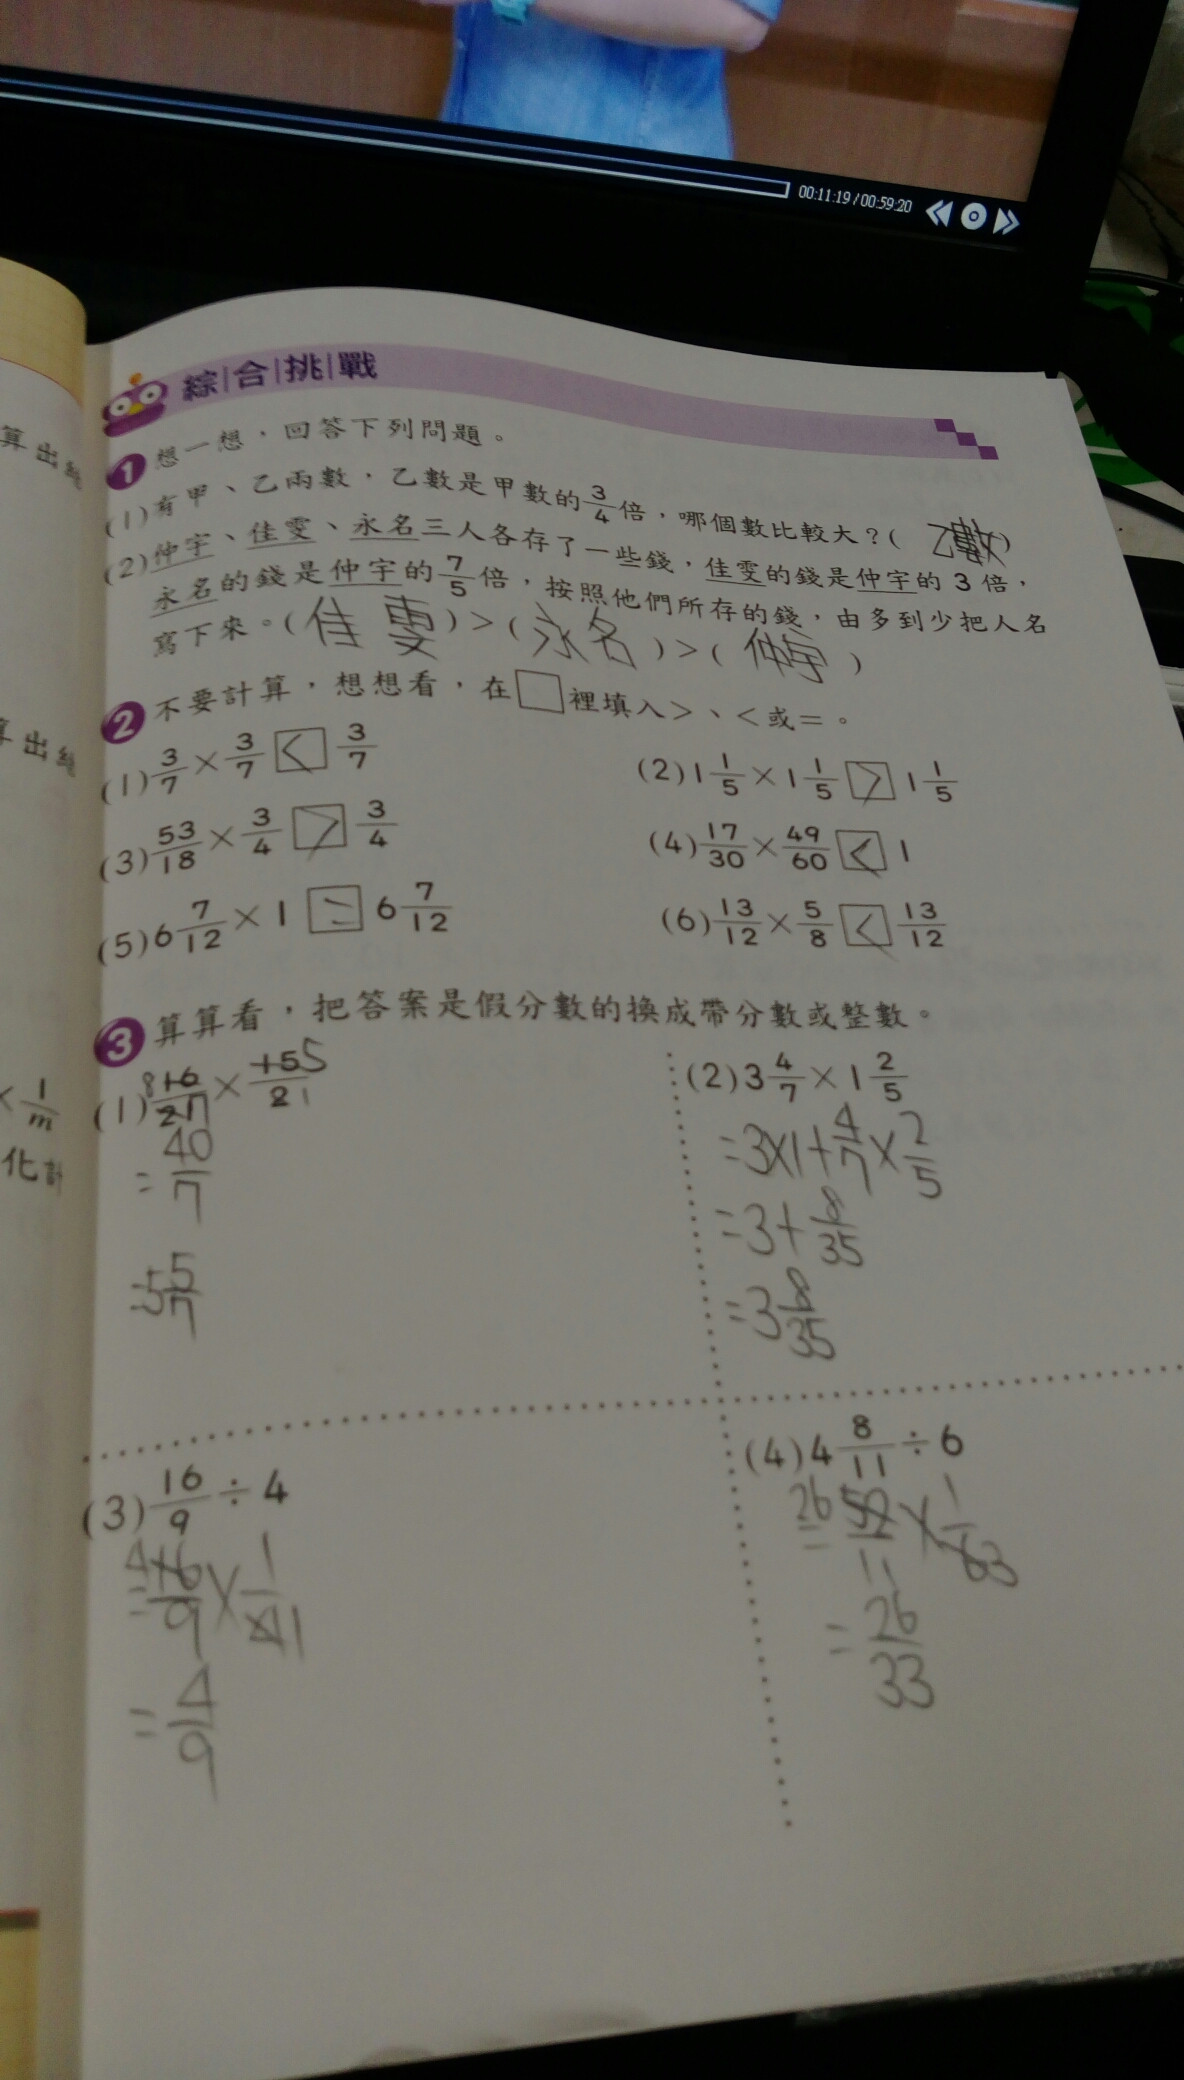 00:11:19/00:59:20
綜合挑戰
算出
1 想一想，回答下列問題。
(1)有甲、乙兩數，乙數是甲數的3/4倍，哪個數比較大？( 乙數)
(2)仲宇、佳雯、永名三人各存了一些錢，佳雯的錢是仲宇的3倍，
永名的錢是仲宇的7/5倍，按照他們所存的錢，由多到少把人名
寫下來。(佳雯)>(永名)>(仲宇)
2 不要計算，想想看，在□裡填入>、<或=。
(1) 3/7 × 3/7 < 3/7
(2) 1 1/5 × 1 1/5 > 1 1/5
(3) 53/18 × 3/4 > 3/4
(4) 17/30 × 49/60 < 1
(5) 6 7/12 × 1 = 6 7/12
(6) 13/12 × 5/8 < 13/12
算出
3 算算看，把答案是假分數的換成帶分數或整數。
× 1/m
化
(1) 8 16/21 7 × 15 5/2 1
= 40/7
= 5 5/7
(2) 3 4/7 × 1 2/5
= 3×1 + 4/7 × 2/5
= 3 + 8/35
= 3 8/35
(3) 16/9 ÷ 4
= 4 16/9 × 1/4 1
= 4/9
(4) 4 8/11 ÷ 6
= 26 52/11 × 1/6 3
= 26/33